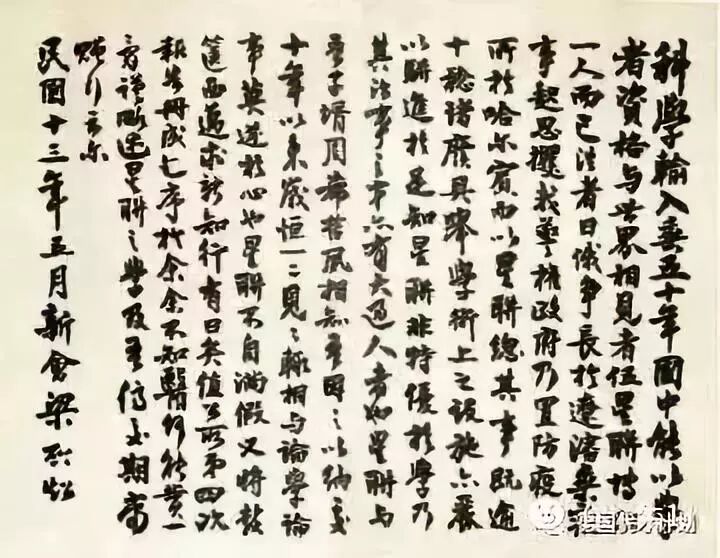 科學輸入垂五十年國中能以學
者資格与世界相見者伍星聯博士
一人而已往者日俄爭長於遼瀋
事起思攫我學權政府乃置防疫
所於哈尔賓而以星聯總其事既逾
十稔諸廢具舉學術上之設施亦
以駢進於是知星聯非特優於學乃
其治事之才亦有大過人者如星聯与
吾子壻周希哲夙相知吾因之以納交
十年以來歲恒一二見〻輒相与論學論
事莫逆於心也星聯不自滿假又將鼓
篋西邁求新知行有日矣值其所弟四次
報告冊成乞序於余余不知醫何能贊一
言謹略述星聯之學及吾儕交期當
贈行云尔
民國十三年五月新會梁啟超